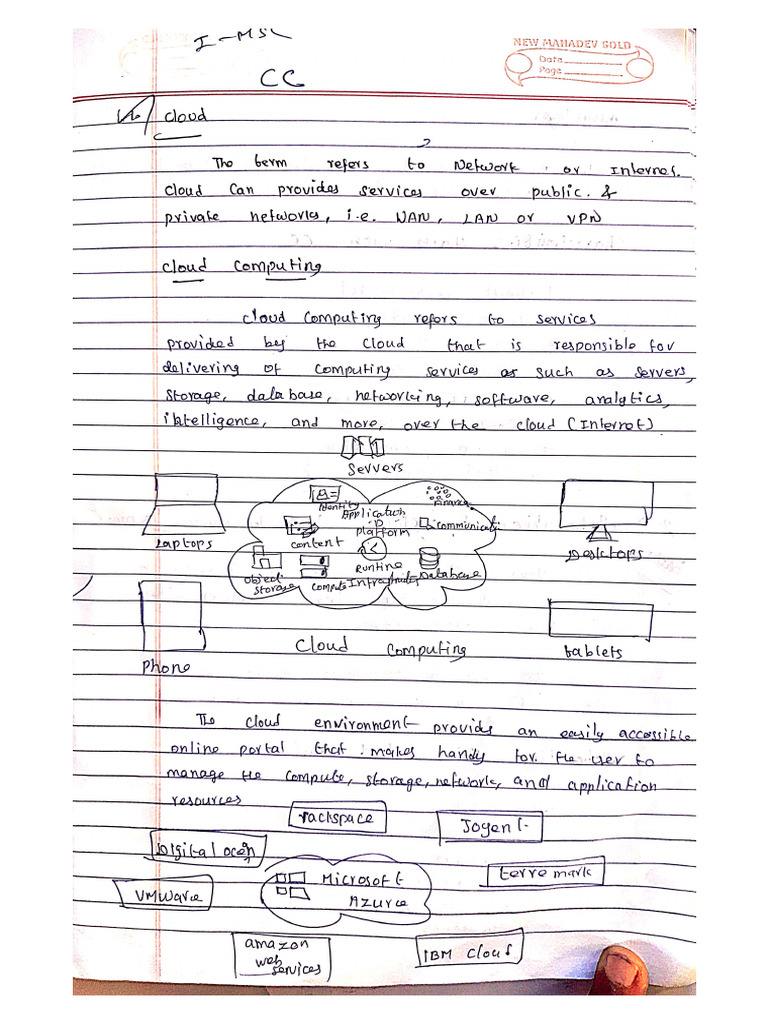 I - MSc
NEW MAHADEV GOLD
Date
Page
CC
Cloud
The term refers to Network or Internet.
cloud Can provides services over public &
private networks, i.e. WAN, LAN or VPN
cloud computing
cloud computing refers to services
provided by the cloud that is responsible for
delivering of computing services as such as servers,
storage, database, networking, software, analytics,
intelligence, and more, over the cloud (Internet)
Servers
Identity
Finance
Application
Laptops
content
Platform
communicati
Desktops
Runtime
Object
Storage
Compute
Infrastructer
Database
Cloud computing
tablets
Phone
The cloud environment provides an easily accessible
online portal that makes handy for the user to
manage the compute, storage, network, and application
resources
rackspace
Joyent
Digital ocen
terremark
VMware
Microsoft
Azurce
amazon
web
services
IBM Cloud